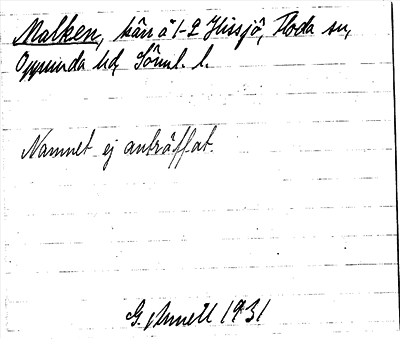 Malken, kärr å 1-2 Jussjö, Floda sn,
Oppunda hd, Söml. l.
Namnet ej anträffat.
G. Annell 1931